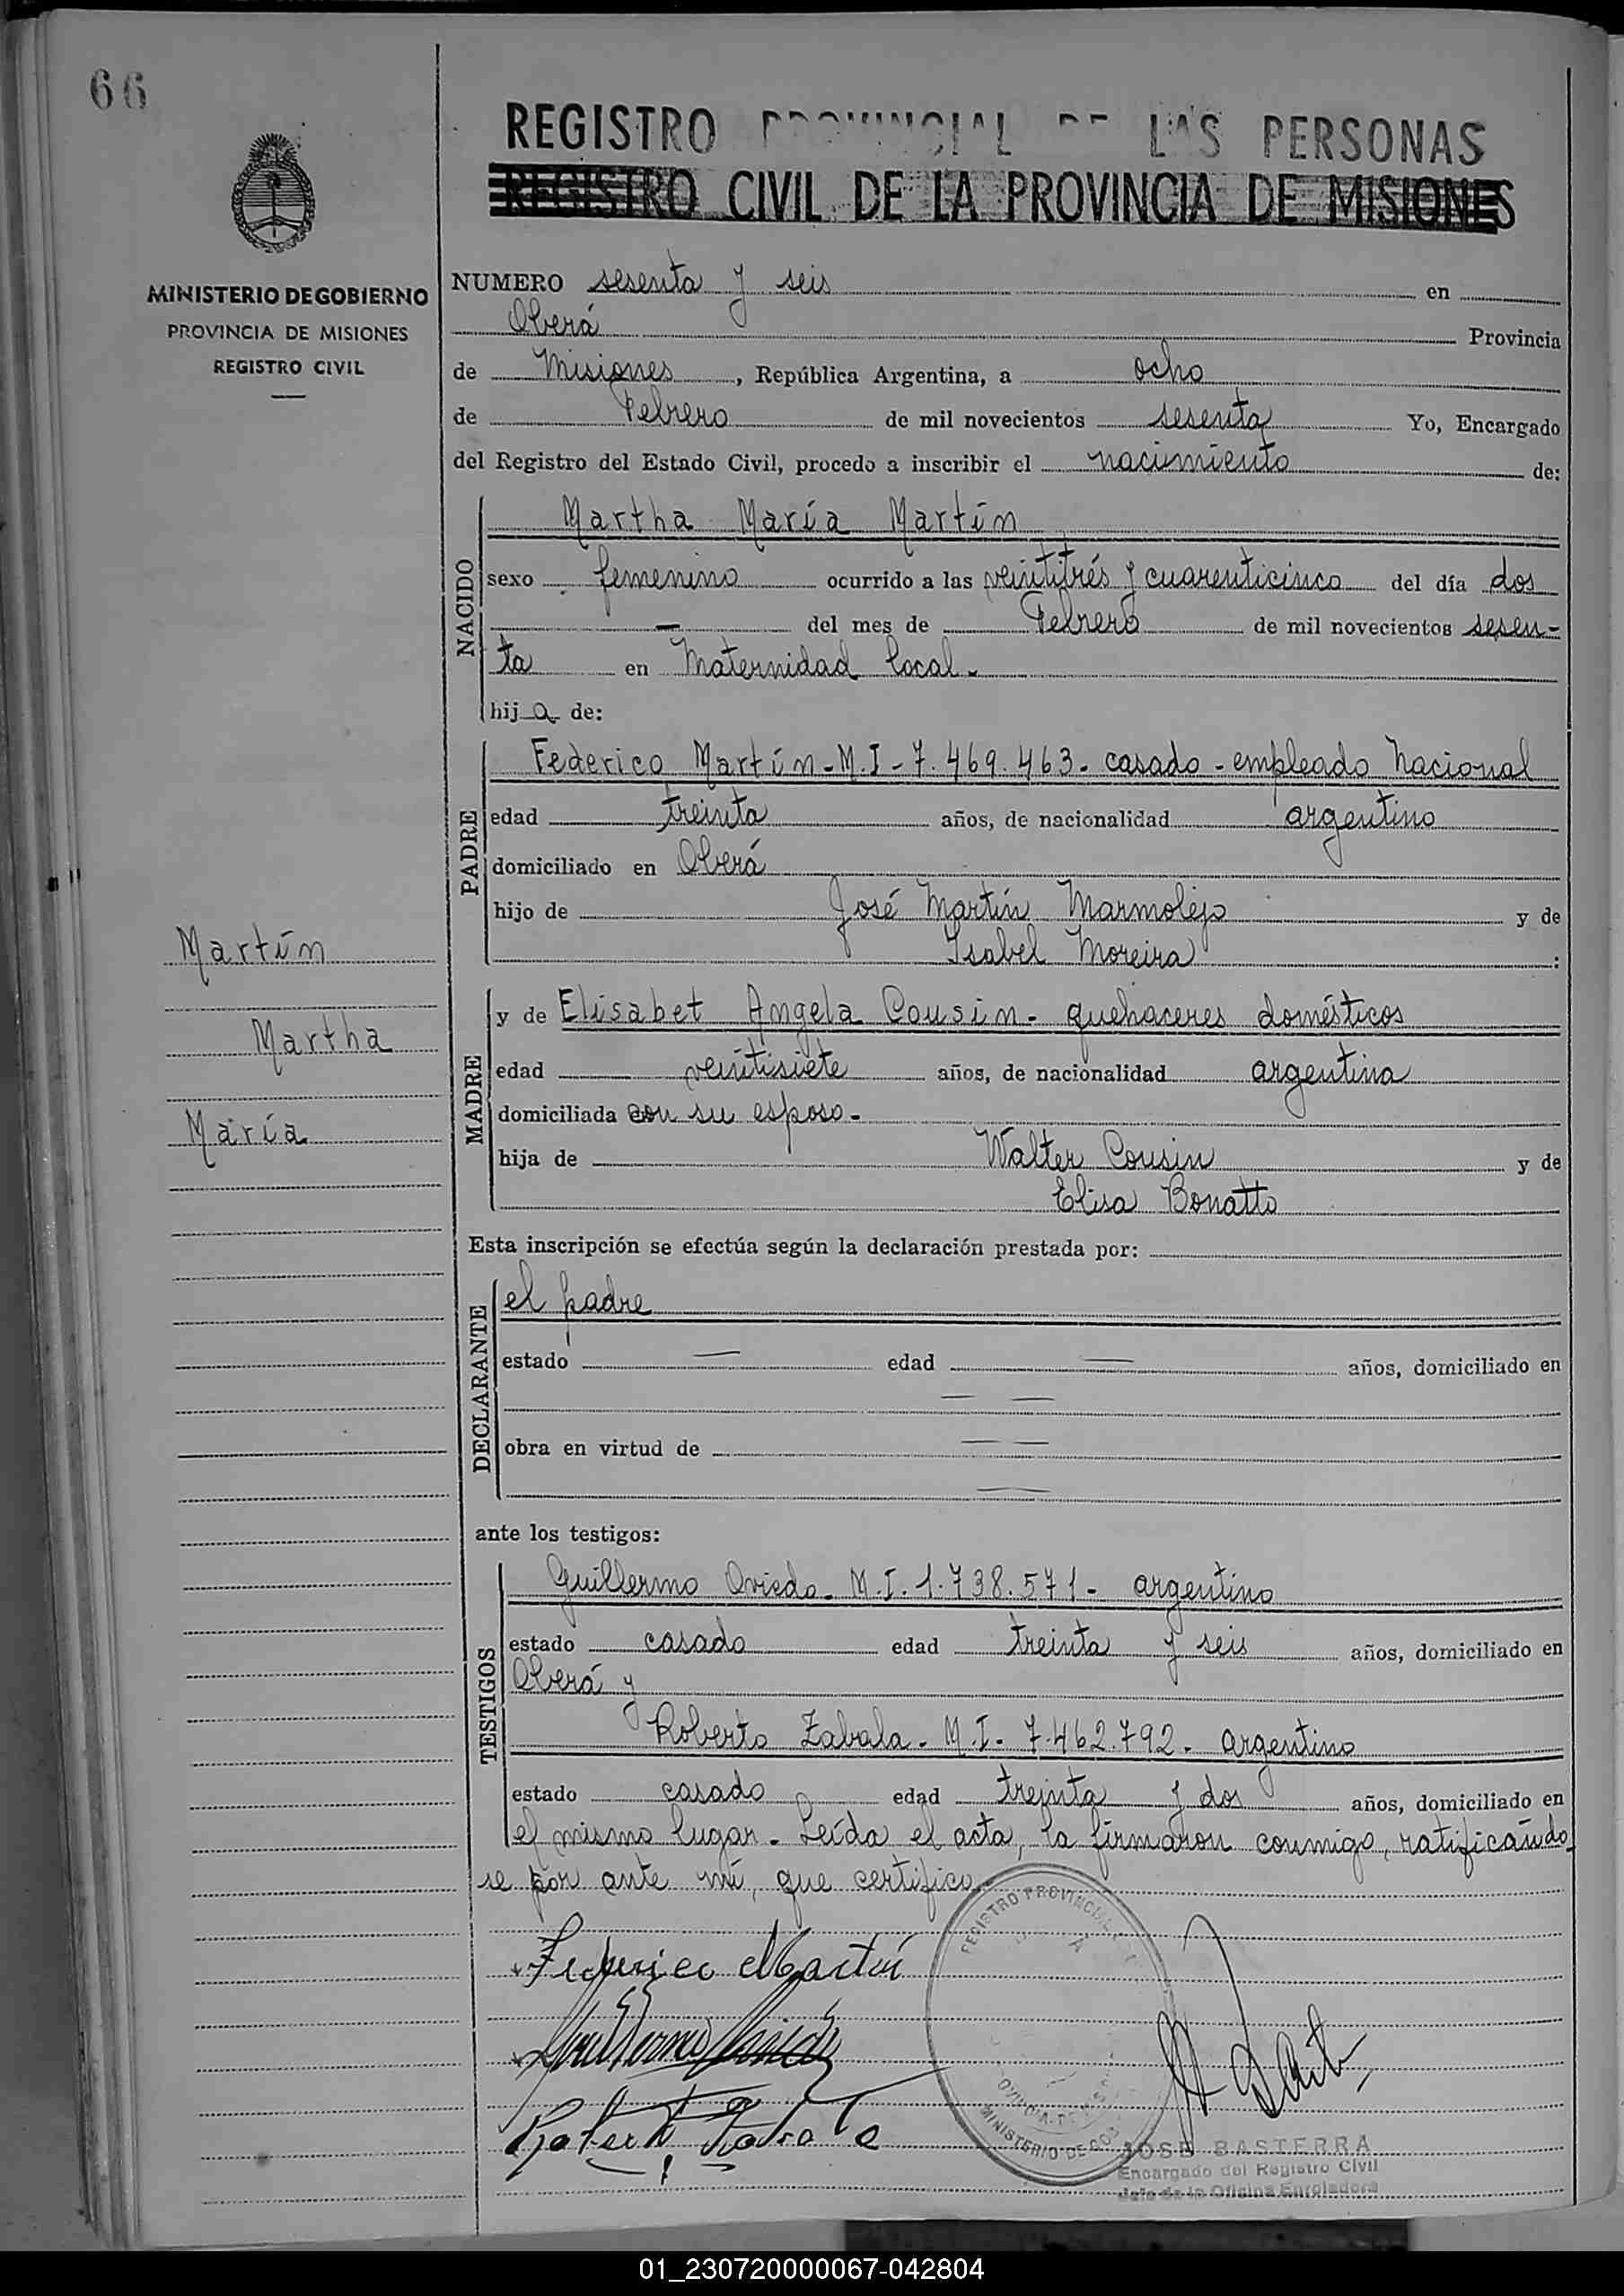 66
REGISTRO PROVINCIAL DE LAS PERSONAS
REGISTRO CIVIL DE LA PROVINCIA DE MISIONES
MINISTERIO DE GOBIERNO
PROVINCIA DE MISIONES
REGISTRO CIVIL
NUMERO sesenta y seis en
Oberá Provincia
de Misiones, República Argentina, a ocho
de Febrero de mil novecientos sesenta Yo, Encargado
del Registro del Estado Civil, procedo a inscribir el nacimiento de:
NACIDO
Martha María Martín
sexo femenino ocurrido a las veintitrés y cuarenticinco del día dos
— del mes de Febrero de mil novecientos sesen-
ta en Maternidad local.-
hija de:
PADRE
Federico Martín - M.I - 7.469.463 - casado - empleado nacional
edad treinta años, de nacionalidad argentino
domiciliado en Oberá
hijo de José Martín Marmolejo y de
Isabel Moreira :
Martín
Martha
María
MADRE
y de Elisabet Angela Cousin - quehaceres domésticos
edad veintisiete años, de nacionalidad argentina
domiciliada con su esposo -
hija de Walter Cousin y de
Elisa Bonatto
Esta inscripción se efectúa según la declaración prestada por:
DECLARANTE
el padre
estado — edad — años, domiciliado en
— —
obra en virtud de — —
—
ante los testigos:
TESTIGOS
Guillermo Oviedo - M.I. 1.738.571 - argentino
estado casado edad treinta y seis años, domiciliado en
Oberá y
Roberto Zabala - M.I - 7.462.792 - argentino
estado casado edad treinta y dos años, domiciliado en
el mismo lugar - Leída el acta, la firmaron conmigo, ratificándo
se por ante mí, que certifico.-
REGISTRO PROVINCIAL
Federico Martín
Guillermo Oviedo
Roberto Zabala
MINISTERIO DE GOB
JOSE BASTERRA
Encargado del Registro Civil
Jefe de la Oficina Enroladora
01_230720000067-042804